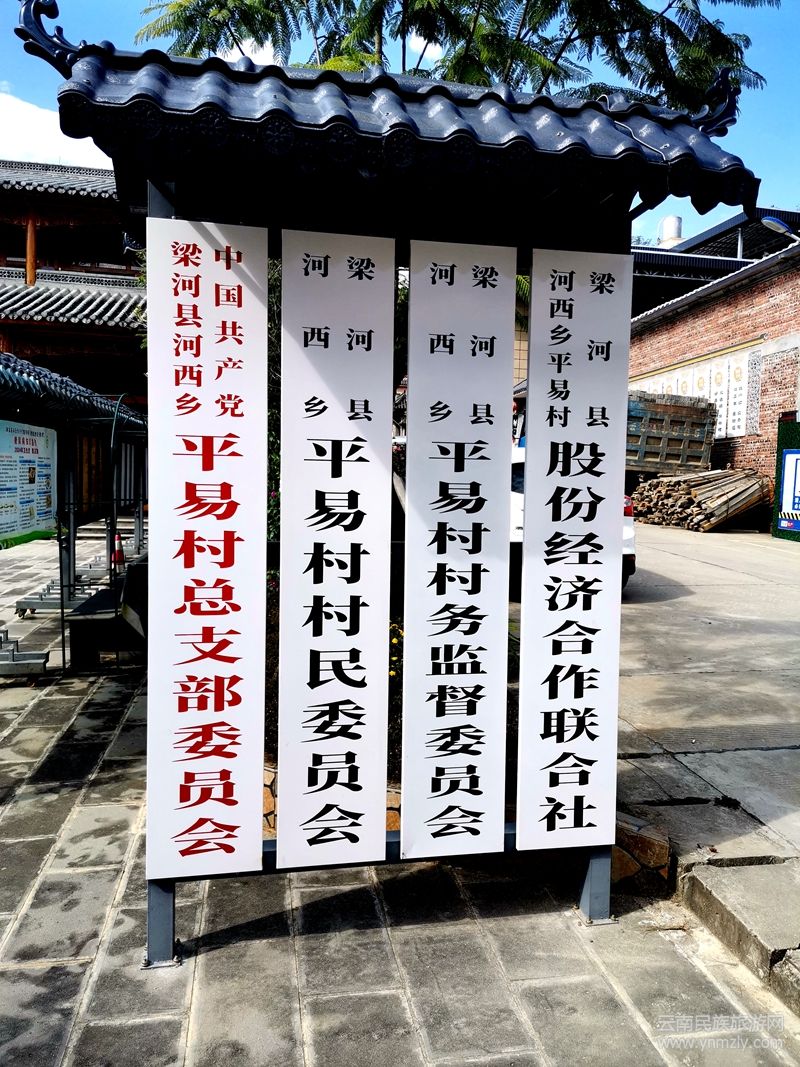 中国共产党
梁河县河西乡
平易村总支部委员会
梁河县
河西乡
平易村村民委员会
梁河县
河西乡
平易村村务监督委员会
梁河县
河西乡平易村
股份经济合作联合社
云南民族旅游网
www.ynmzly.com